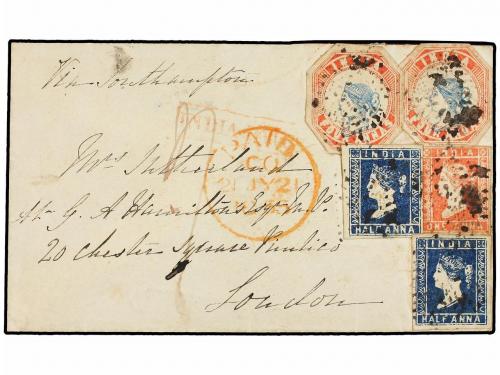 Via Southampton
INDIA
FOUR ANNAS
INDIA
INDIA
PAID
CO
Mrs Sutherland
G. A Hamilton Esqr M.P.
20 Chester Square Pimlico
London
INDIA
HALF ANNA
INDIA
ONE ANNA
INDIA
HALF ANNA